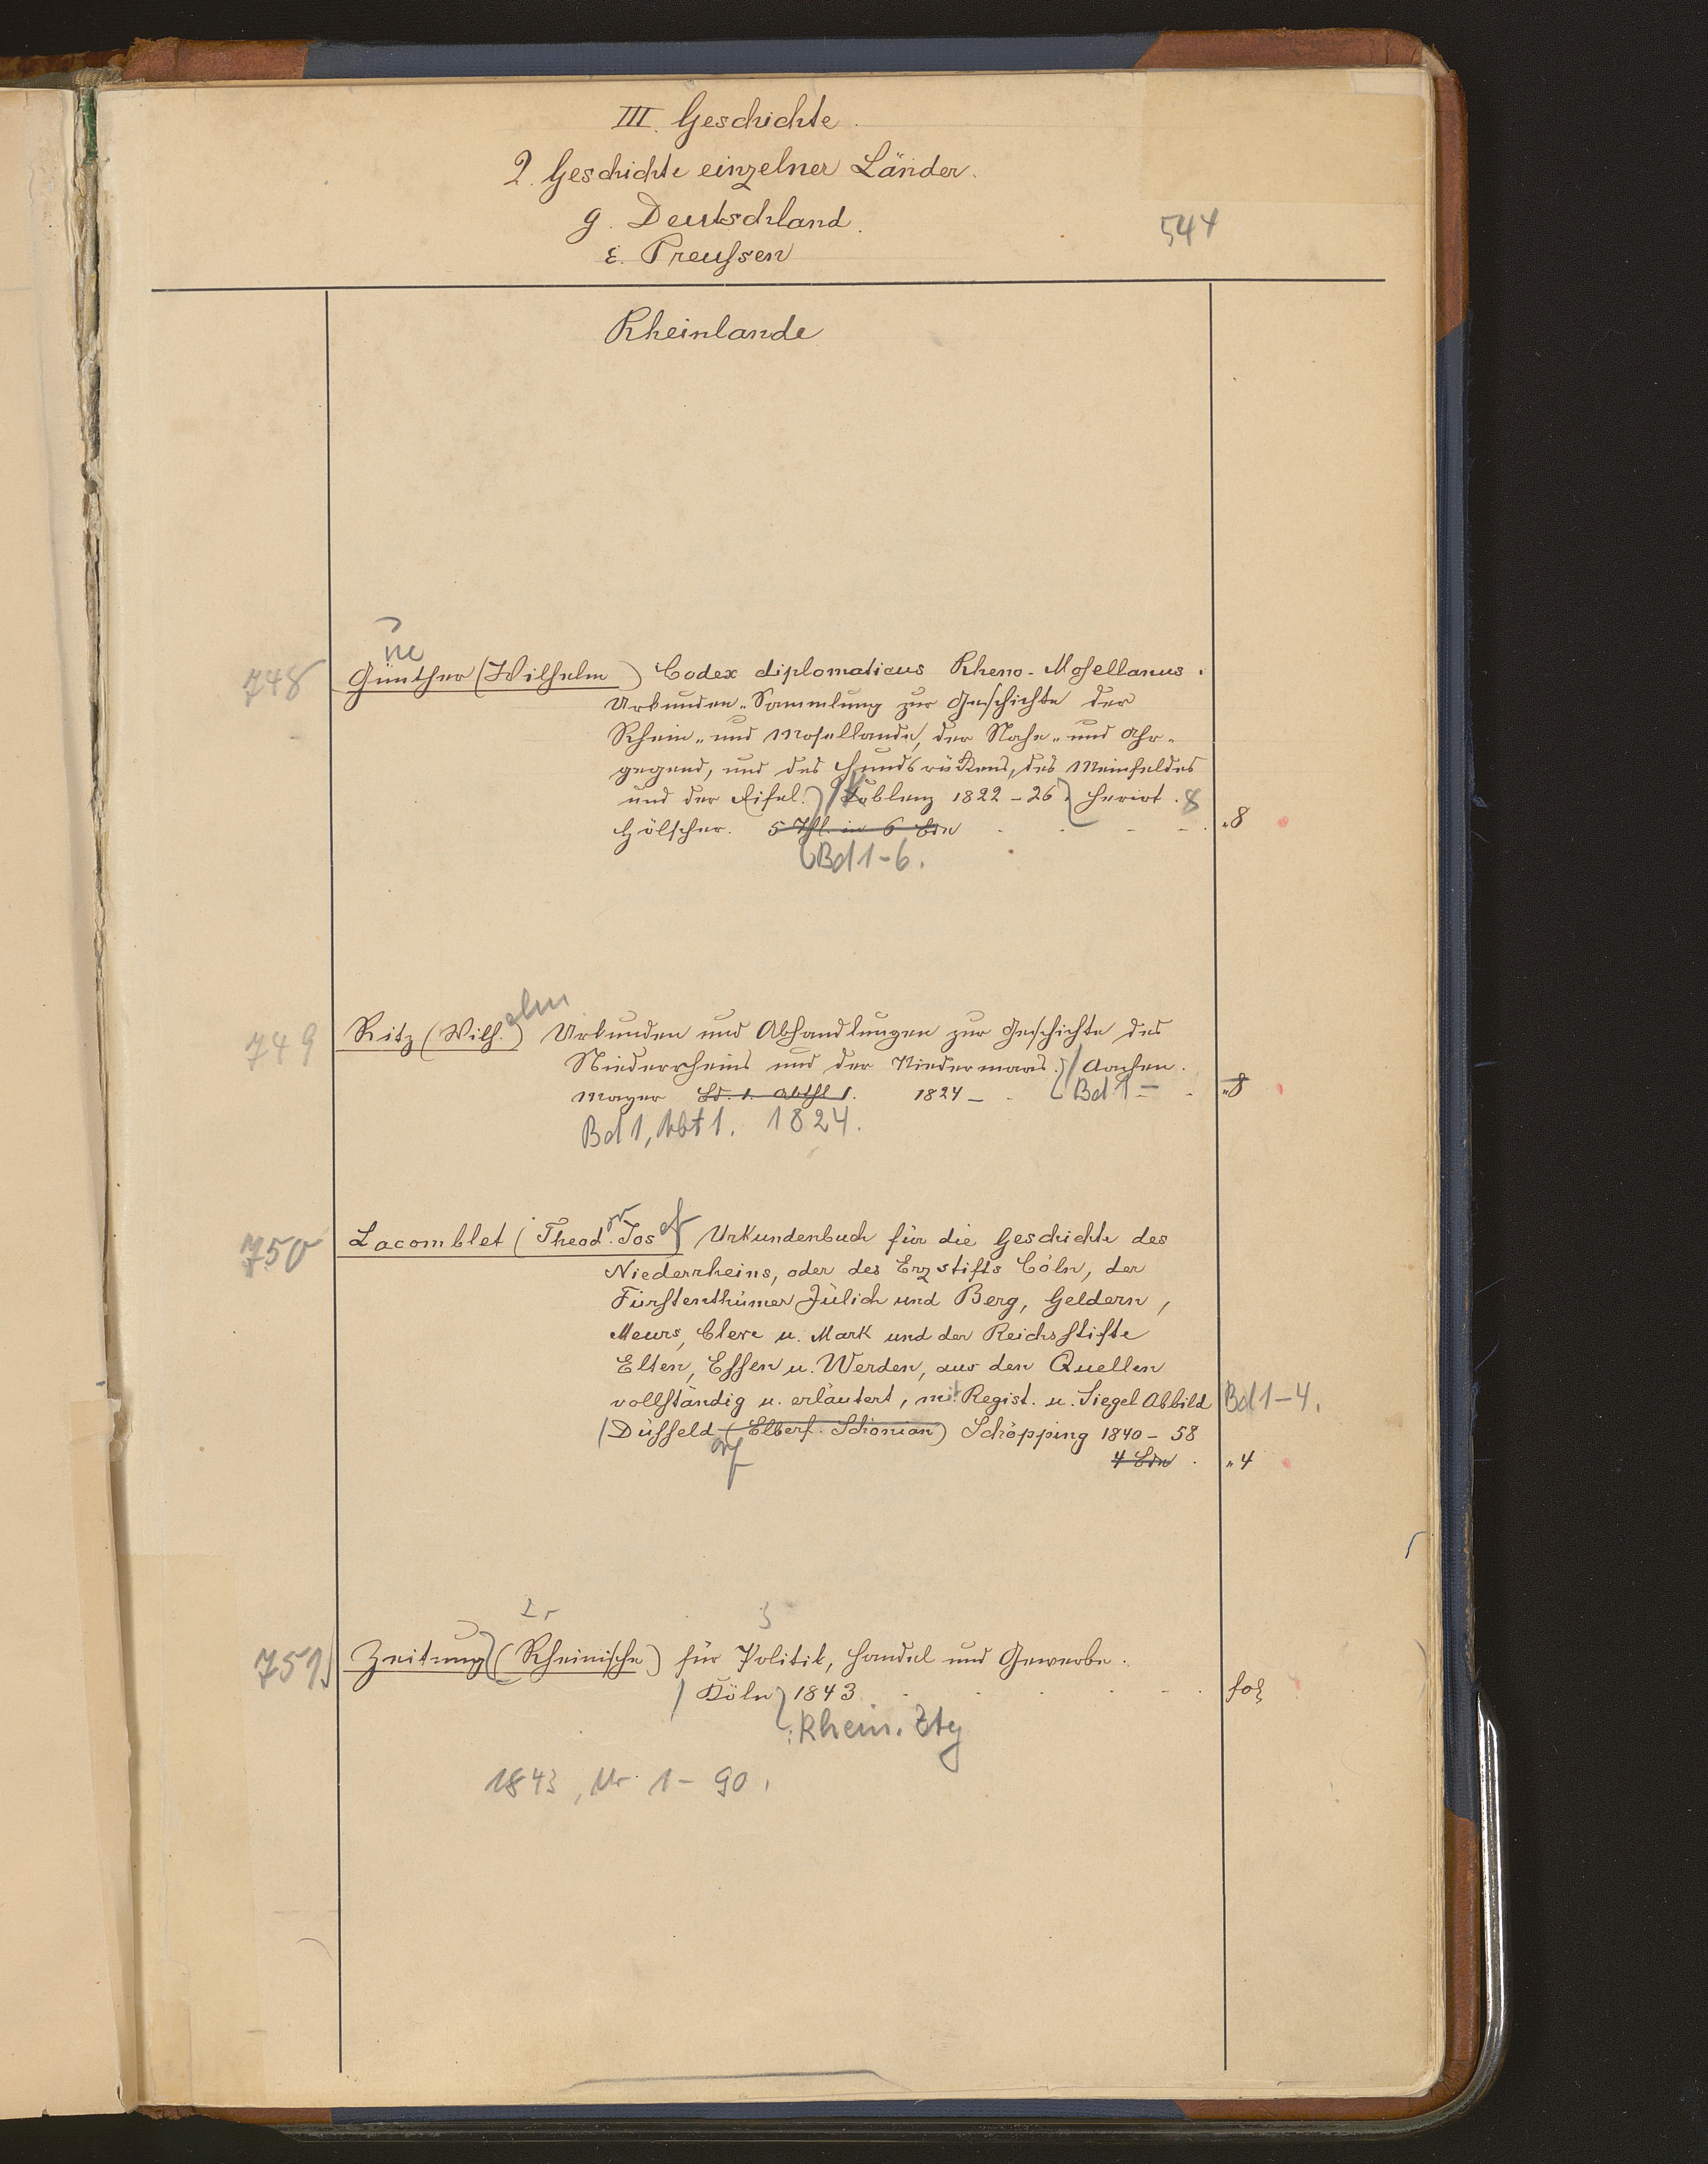 III. Geschichte.
2. Geschichte einzelner Länder.
g. Deutschland.
544
ε. Preußen
Rheinlande
ue
748 Günther (Wilhelm) Codex diplomaticus Rheno-Mosellanus.
Urkunden-Sammlung zur Geschichte der
Rhein- und Mosellande, der Nahe- und Ahr-
gegend, und des Hundsrückens, des Meinfeldes
und der Eifel. Koblenz 1822-26. Heriot. 8
Hölscher. 5 Thl. in 6 Bdn "8
Bd 1-6.
elm
749 Ritz (Wilh.) Urkunden und Abhandlungen zur Geschichte des
Niederrheins und der Niedermaas. Aachen.
Mayer Bd. 1. Abthl 1. 1824 - Bd 1= "8
Bd 1, Abt 1. 1824.
750 Lacomblet (Theod. Jos ef) Urkundenbuch für die Geschichte des
Niederrheins, oder des Erzstifts Cöln, der
Fürstenthümer Jülich und Berg, Geldern,
Meurs, Cleve u. Mark und der Reichsstifte
Elten, Essen u. Werden, aus den Quellen
vollständig u. erläutert, mit Regist. u. Siegel Abbild Bd 1-4.
Düsseld (Elberf. Schönian) Schöpping 1840-58
orf
4 Bdn. "4
751 Zeitung (Rheinische) für Politik, Handel und Gewerbe.
Köln 1843 fol
: Rhein. Ztg
1843, Nr. 1-90.